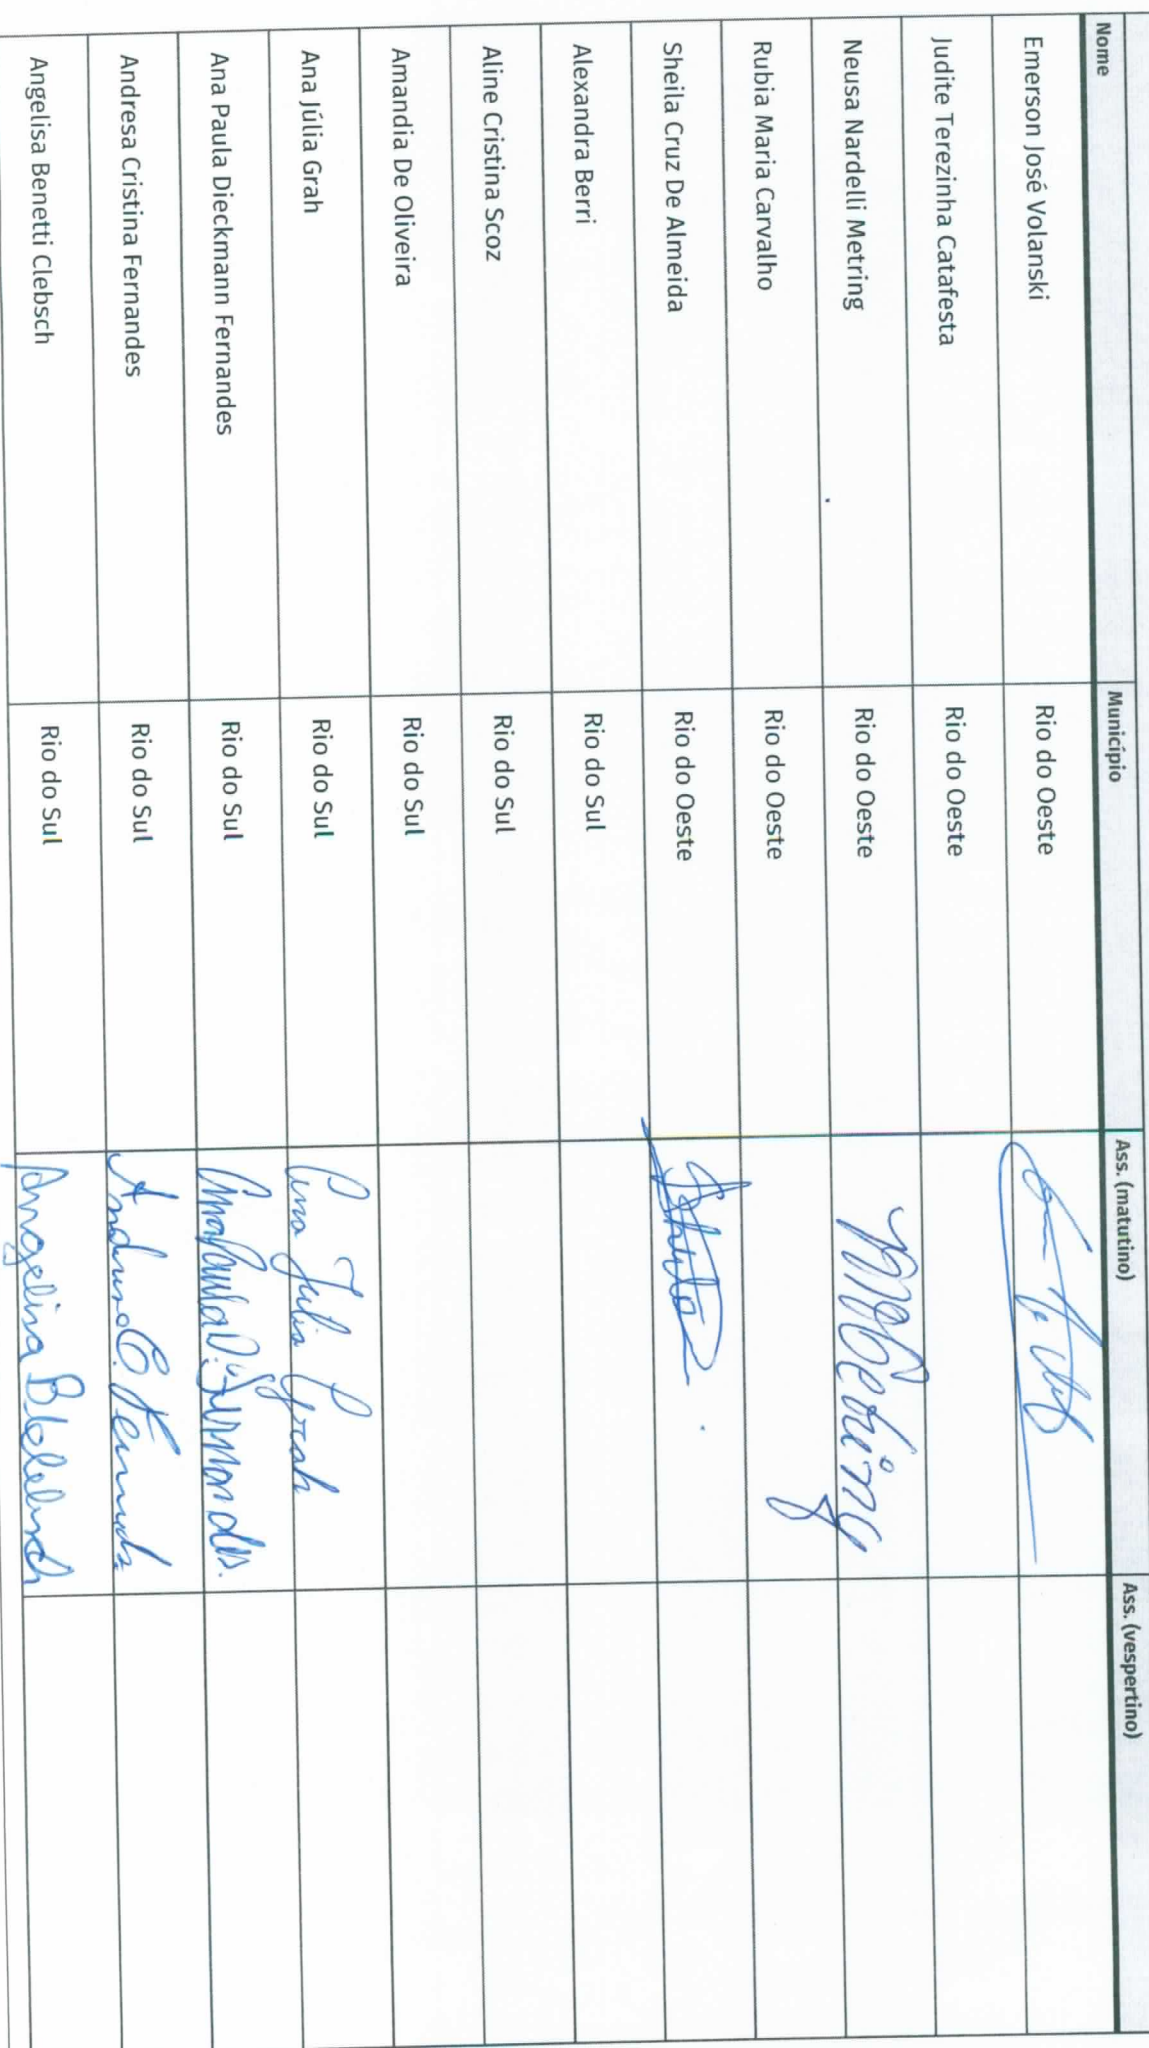 Nome Município Ass. (matutino) Ass. (vespertino)
Emerson José Volanski Rio do Oeste
Judite Terezinha Catafesta Rio do Oeste
Neusa Nardelli Metring Rio do Oeste NMetring
Rubia Maria Carvalho Rio do Oeste
Sheila Cruz De Almeida Rio do Oeste
Alexandra Berri Rio do Sul
Aline Cristina Scoz Rio do Sul
Amandia De Oliveira Rio do Sul
Ana Júlia Grah Rio do Sul Ana Julia Grah
Ana Paula Dieckmann Fernandes Rio do Sul Ana Paula D. Fernandes.
Andresa Cristina Fernandes Rio do Sul Andresa C. Fernandes
Angelisa Benetti Clebsch Rio do Sul Angelisa B Clebsch